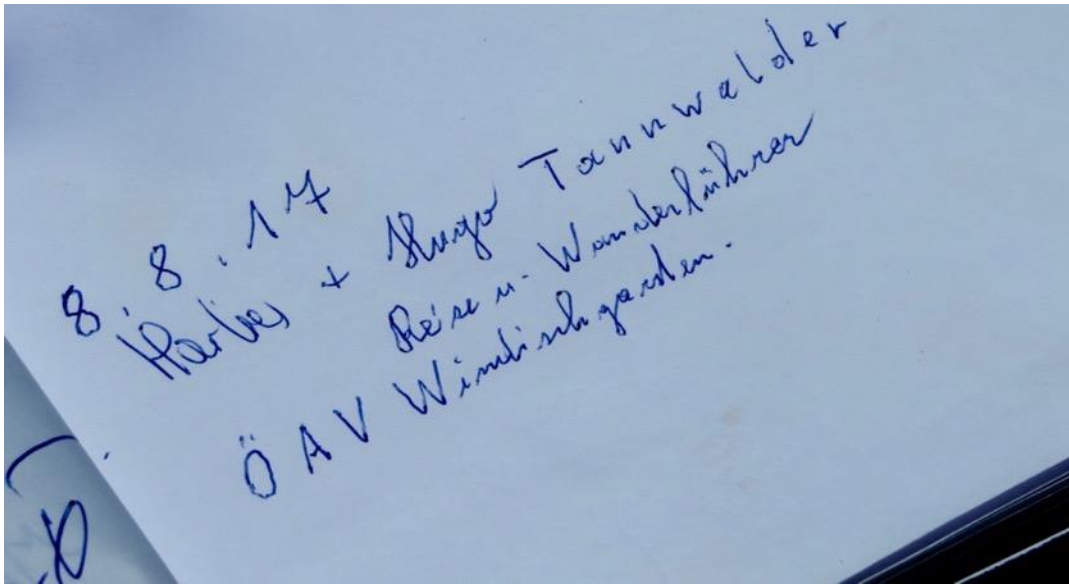 8.8.17
+ Hugo Tannwalder
Reise u. Wanderführer
ÖAV Windischgarsden.